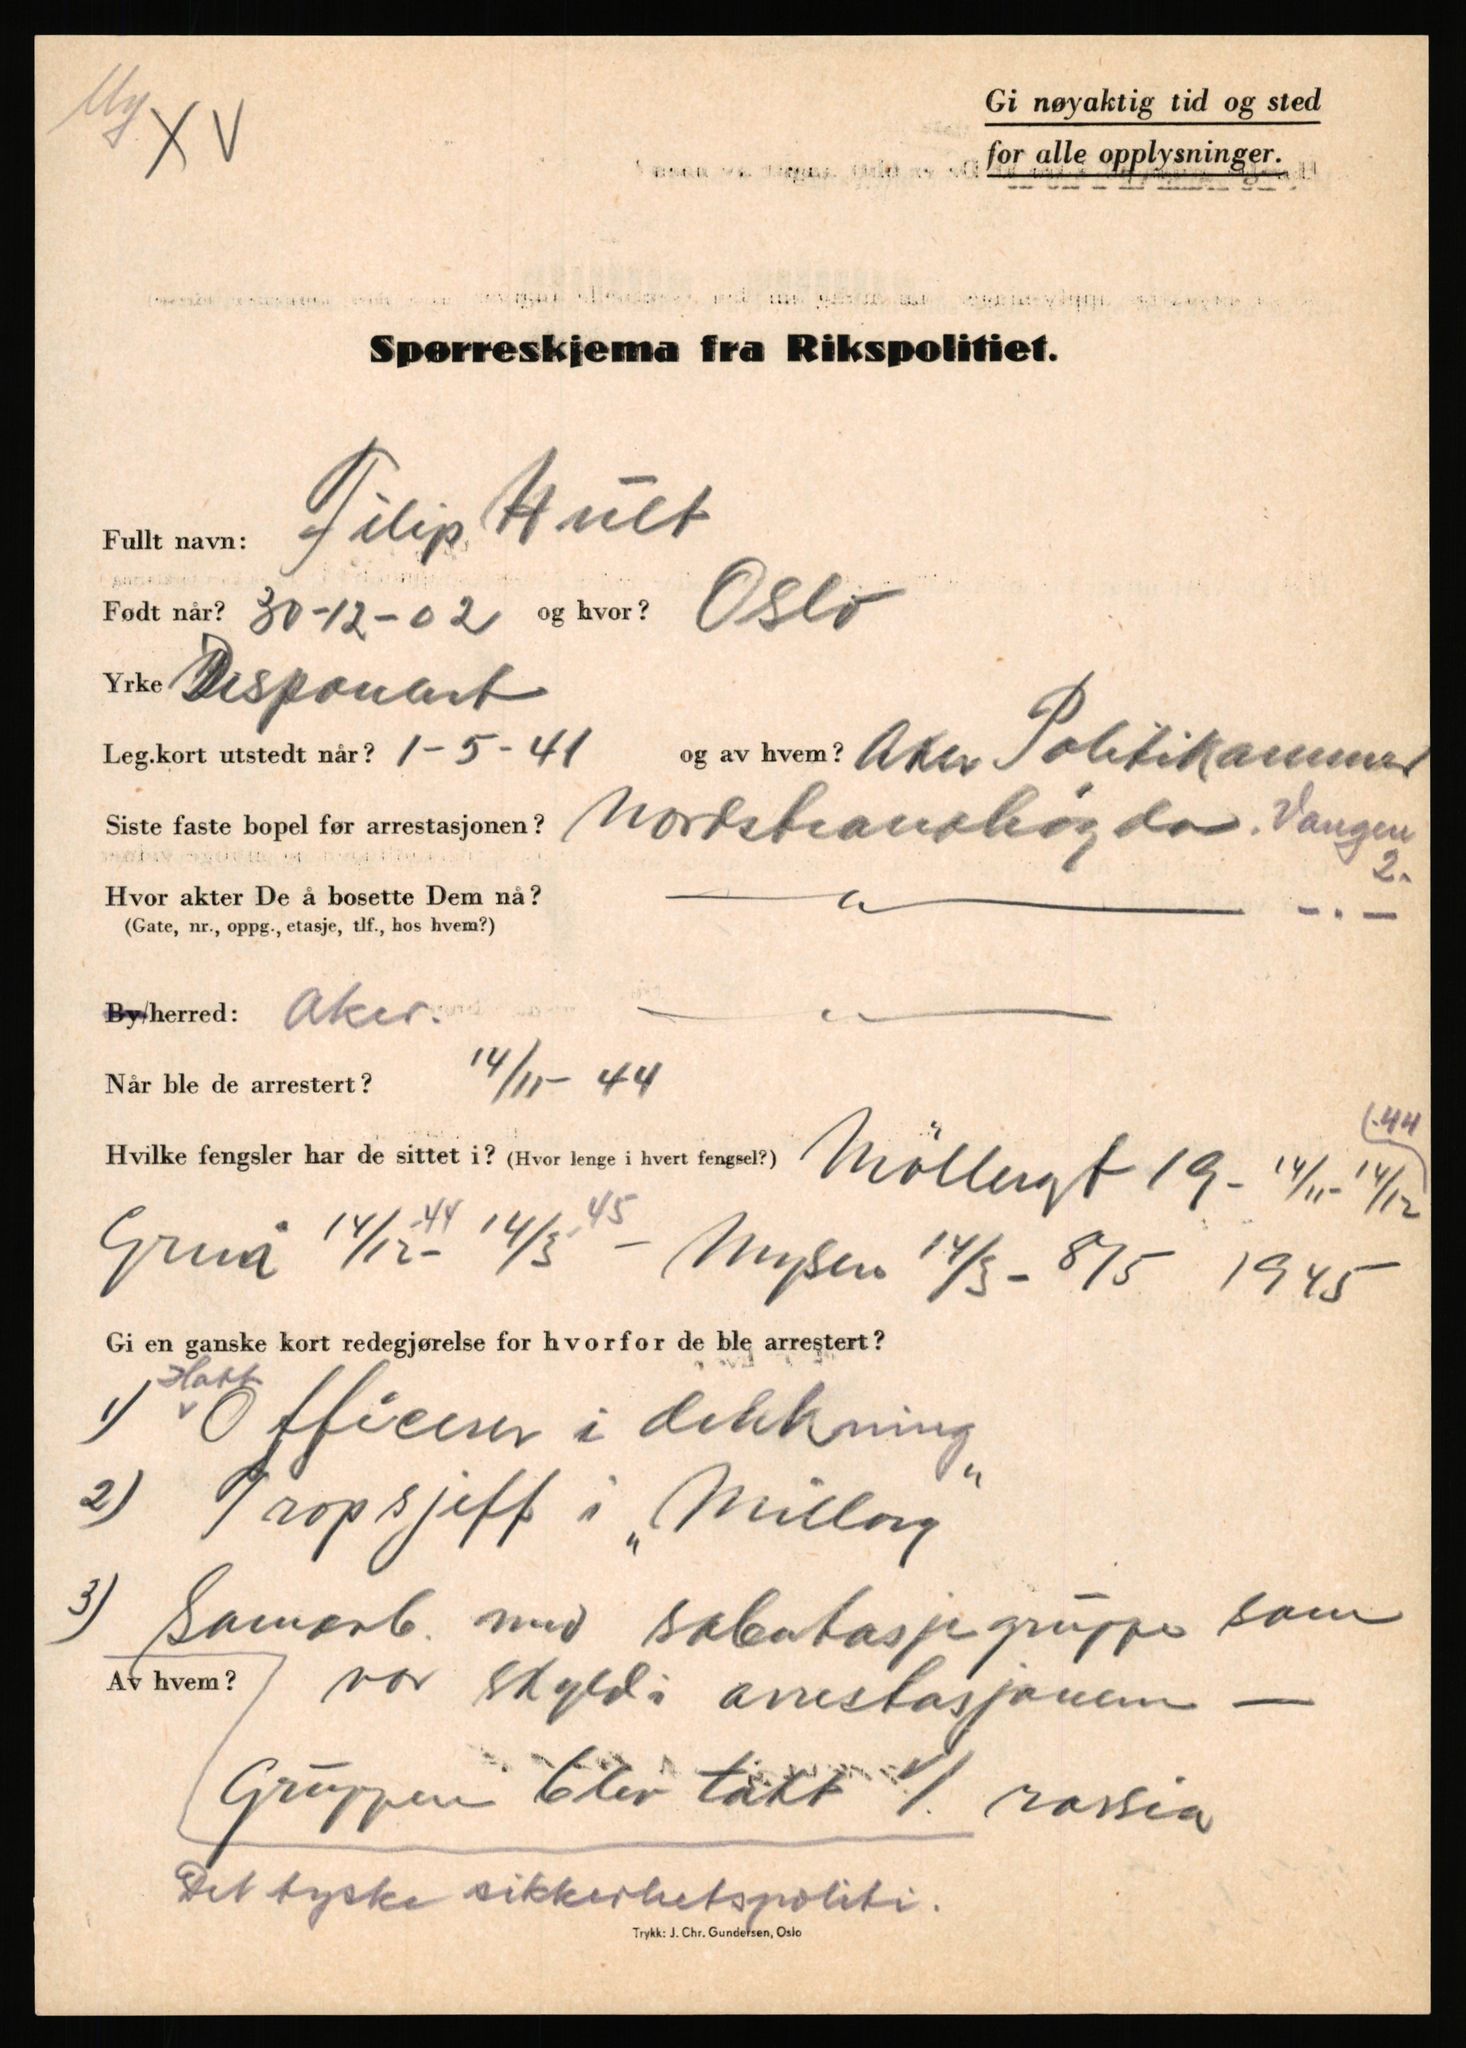 My
X V
Gi nøyaktig tid og sted
for alle opplysninger.
Spørreskjema fra Rikspolitiet.
Fullt navn: Filip Hult
Født når? 30-12-02 og hvor? Oslo
Yrke Disponent
Leg.kort utstedt når? 1-5-41 og av hvem? Aker Politikammer
Siste faste bopel før arrestasjonen? Nordstrandhøgda. Vangen
2.
Hvor akter De å bosette Dem nå? — " — - . -
(Gate, nr., oppg., etasje, tlf., hos hvem?)
By/herred: Aker. — " —
Når ble de arrestert? 14/11- 44
Hvilke fengsler har de sittet i? (Hvor lenge i hvert fengsel?) Möllergt 19 - 14/11- 14/12 -44
Grini 14/12-44 - 14/3-45 - Mysen 14/3 - 8/5 1945
Gi en ganske kort redegjørelse for hvorfor de ble arrestert?
1) Hatt Officerer i dekkning
2) Tropsjeff i „Millorg"
3) Samarb. med sabotasjegruppe som
Av hvem? var skyld i arrestasjonen —
Gruppen blev tatt v/. razzia
Det tyske sikkerhetspoliti.
Trykk: J. Chr. Gundersen, Oslo